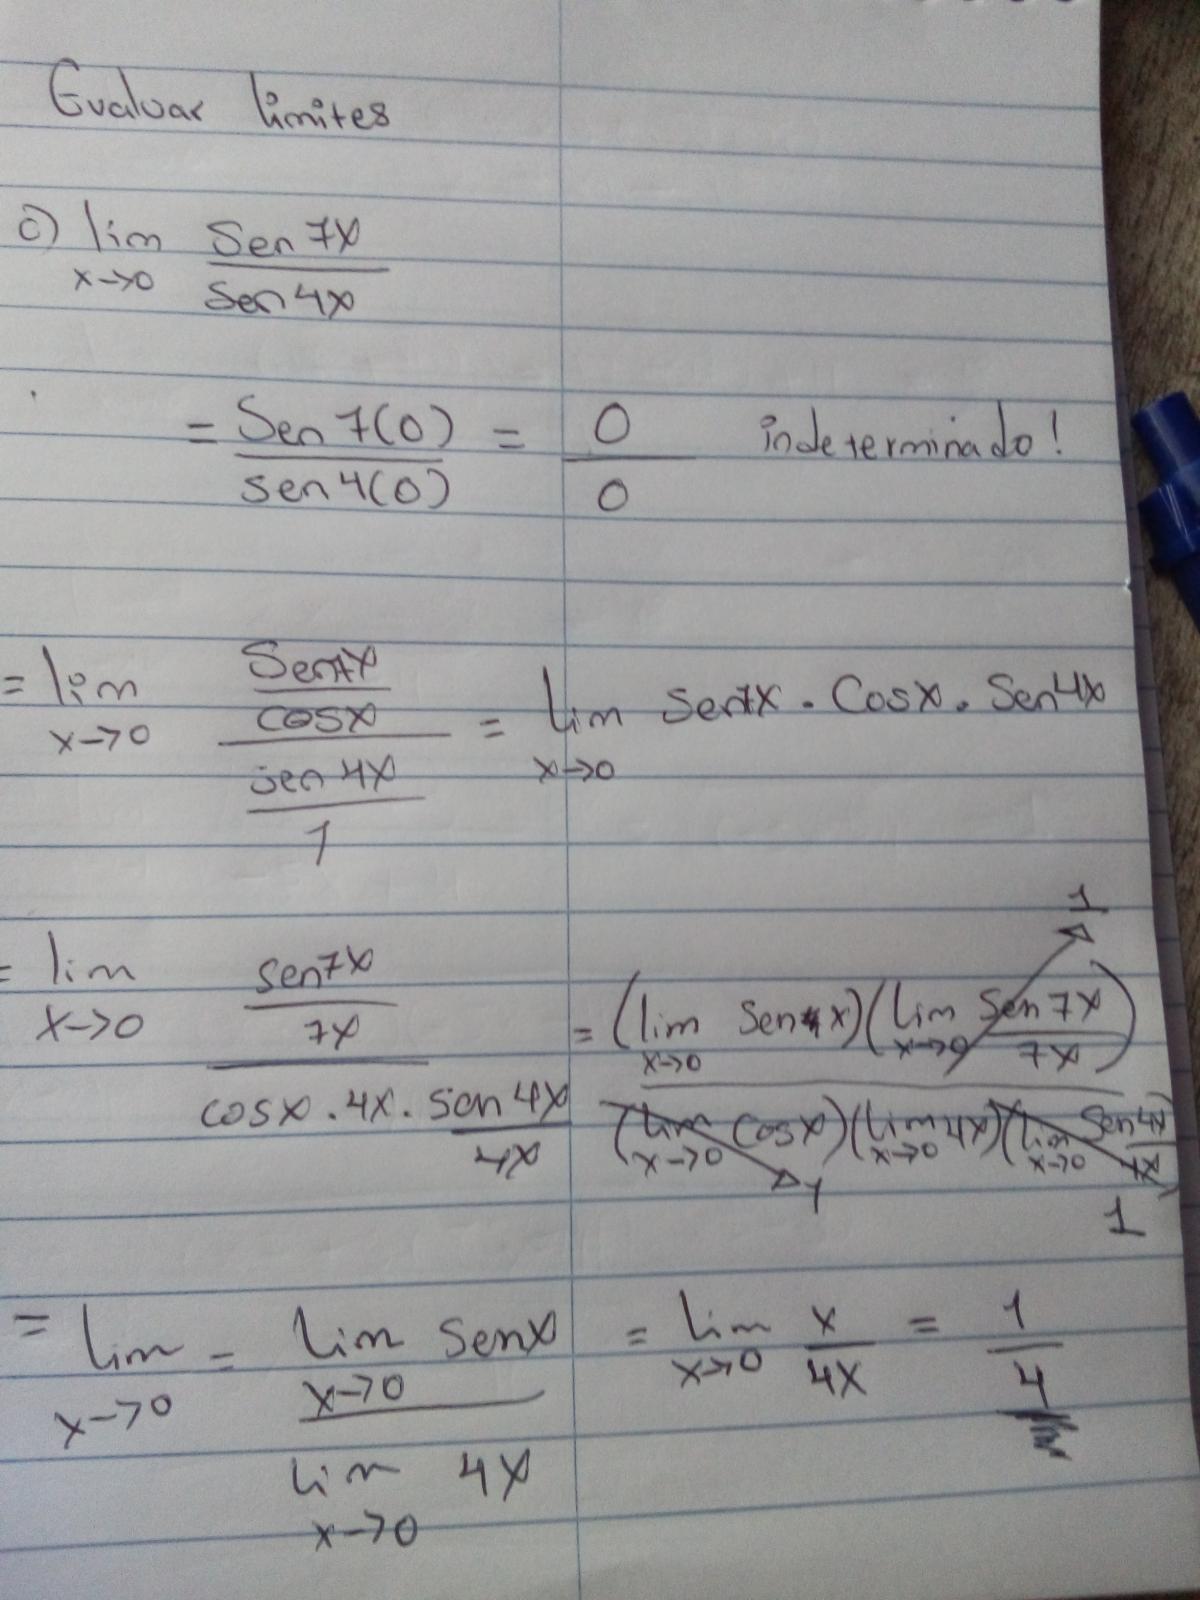 Evaluar limites
c) lim x→0 Sen7x / Sen4x
= Sen7(0) / Sen4(0) = 0 / 0 indeterminado!
= lim x→0 Sen7x / cosx / sen4x / 1 = lim x→0 Sen7x . Cosx . Sen4x
= lim x→0 sen7x / 7x / cosx . 4x . sen4x / 4x = (lim x→0 Senx)(lim x→0 Sen7x / 7x) / (lim x→0 Cosx)(lim x→0 4x)(lim x→0 Sen4x / 4x) 1 1 1
= lim x→0 = lim x→0 Senx / lim x→0 4x = lim x→0 x / 4x = 1 / 4